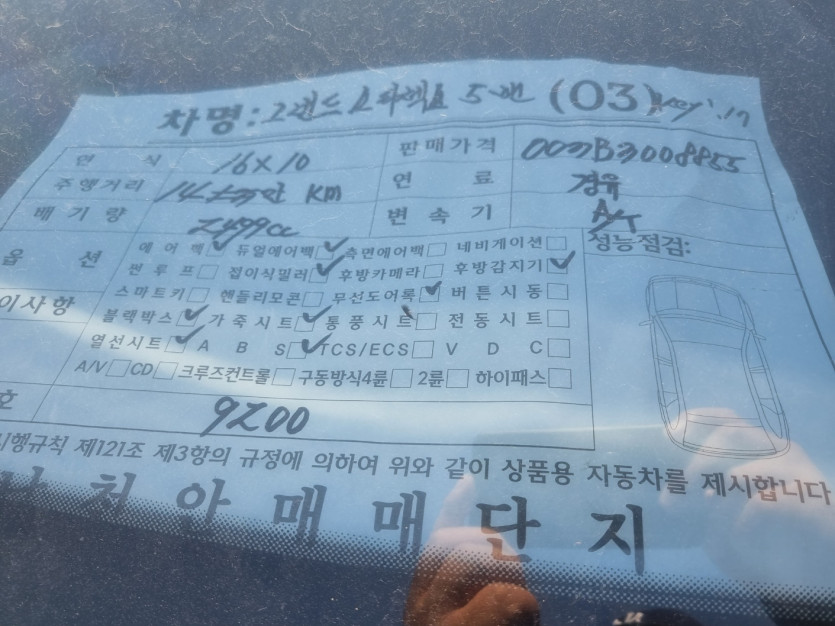 차명: 그랜드 스타렉스 5밴 (03) key '.17
연 식 16x10 판매가격 00gyB3008855
주행거리 KM 연 료 경유
배기량 2499cc 변속기 A/T
옵 션 에어백 듀얼에어백 측면에어백 네비게이션 성능점검:
썬루프 접이식밀러 후방카메라 후방감지기
이사항 스마트키 핸들리모콘 무선도어록 버튼시동
블랙박스 가죽시트 통풍시트 전동시트
열선시트 A B S TCS/ECS V D C
A/V CD 크루즈컨트롤 구동방식4륜 2륜 하이패스
호 9200
시행규칙 제121조 제3항의 규정에 의하여 위와 같이 상품용 자동차를 제시합니다
천 안 매 매 단 지